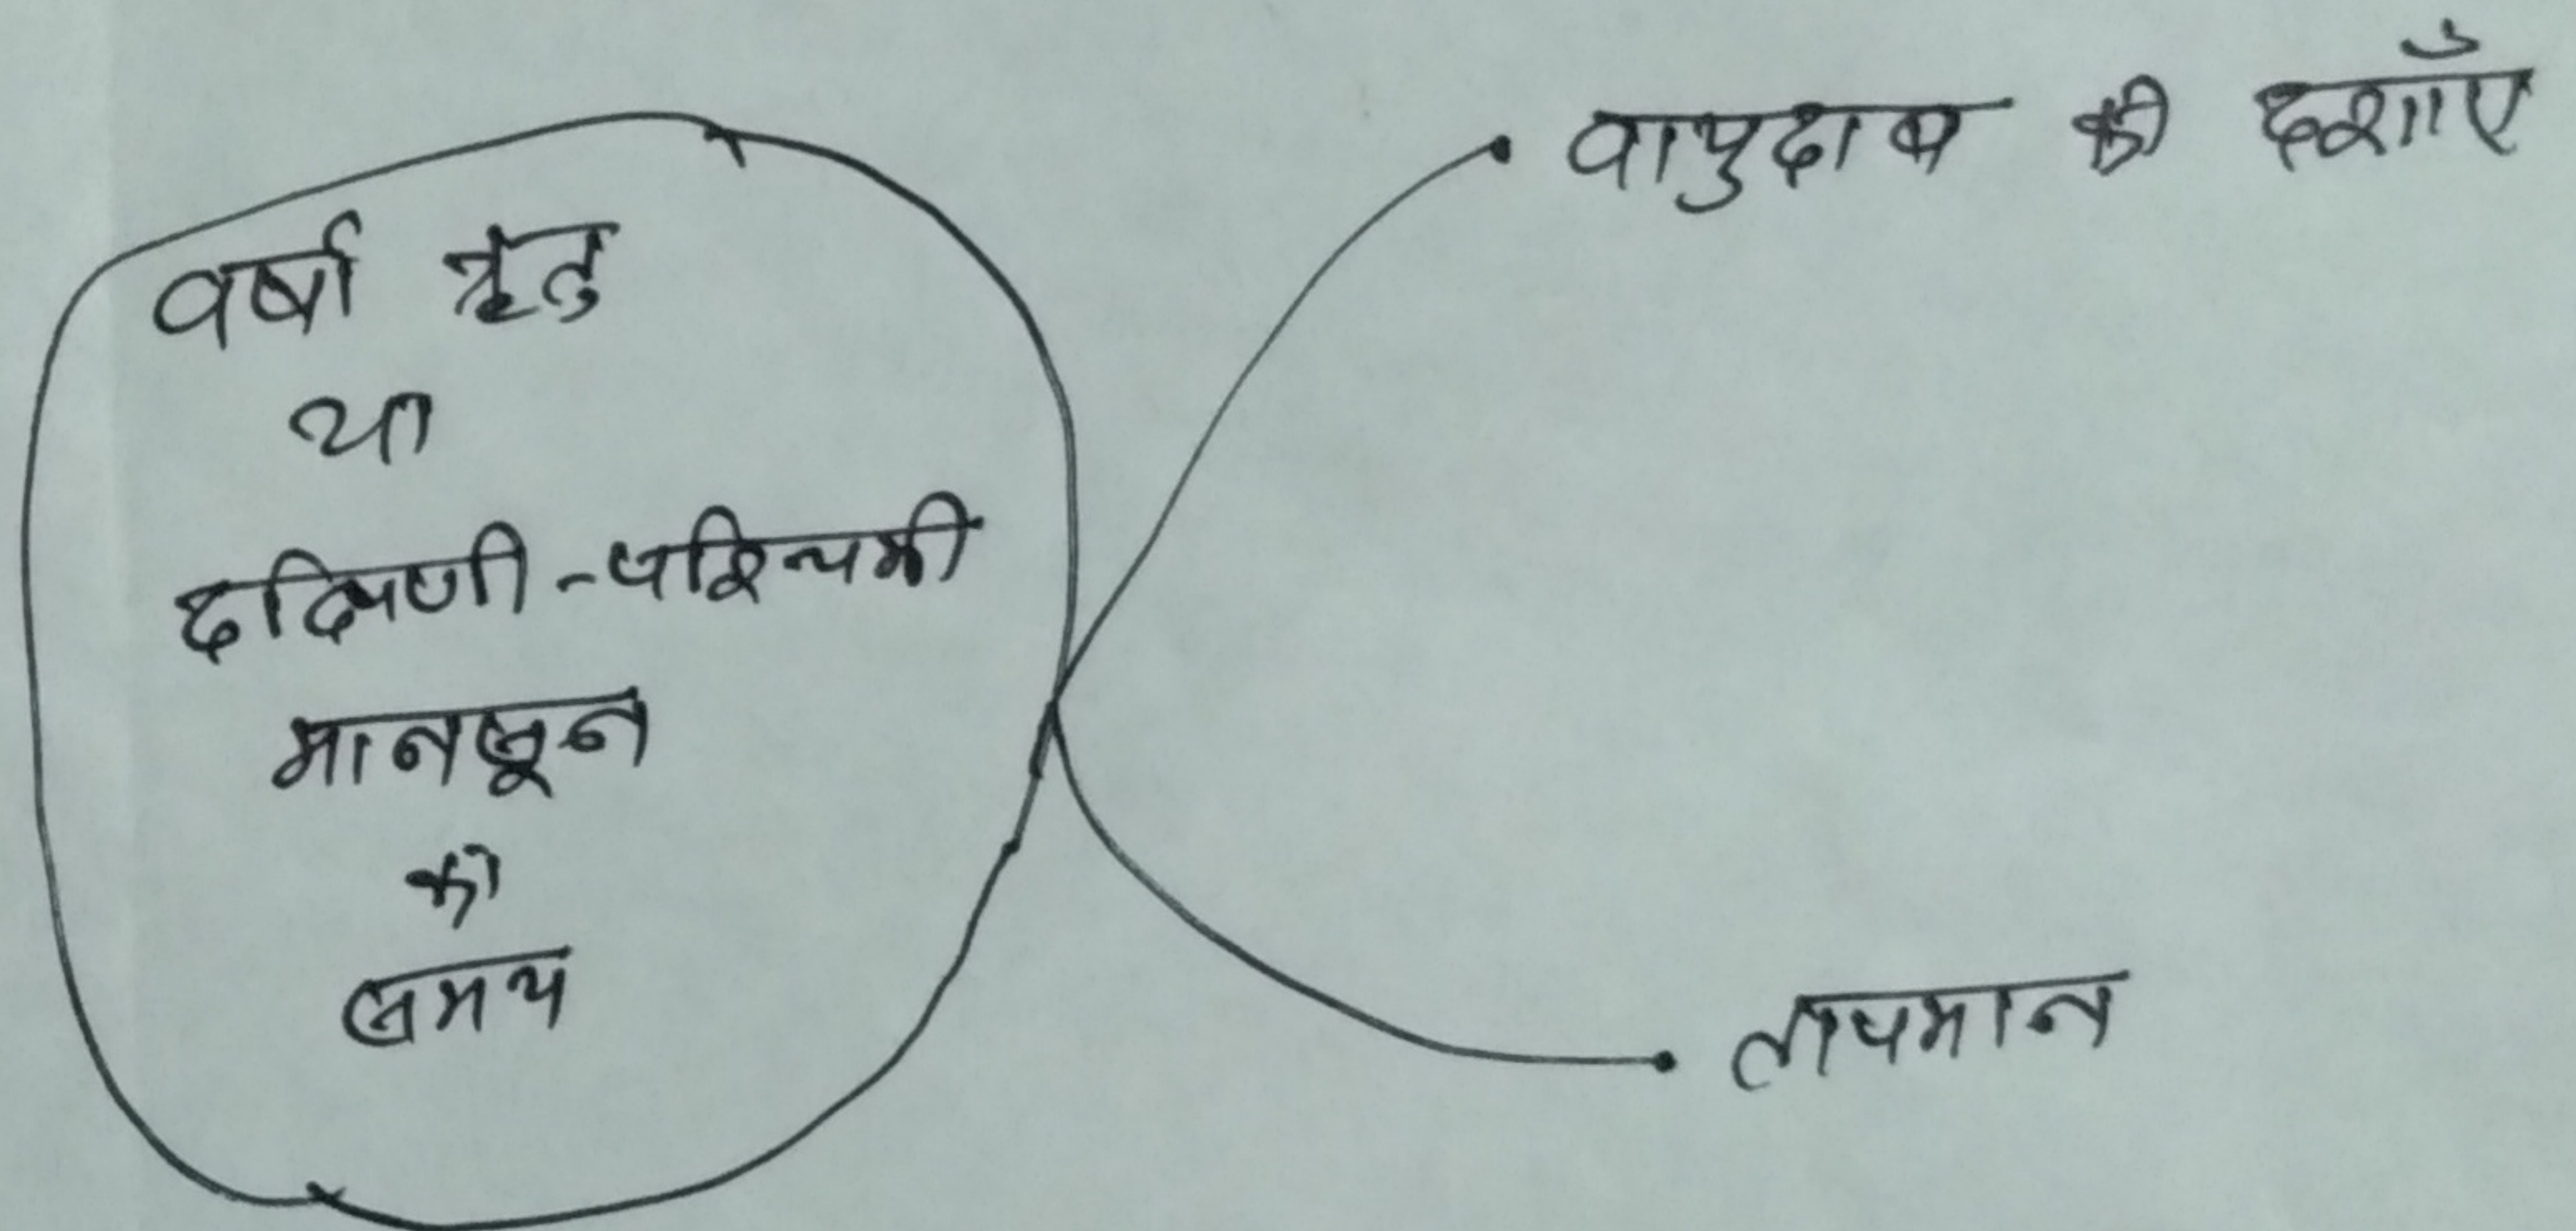 वर्षा ऋतु
या
दक्षिणी-पश्चिमी
मानसून
का
समय
वायुदाब की दशाएँ
तापमान